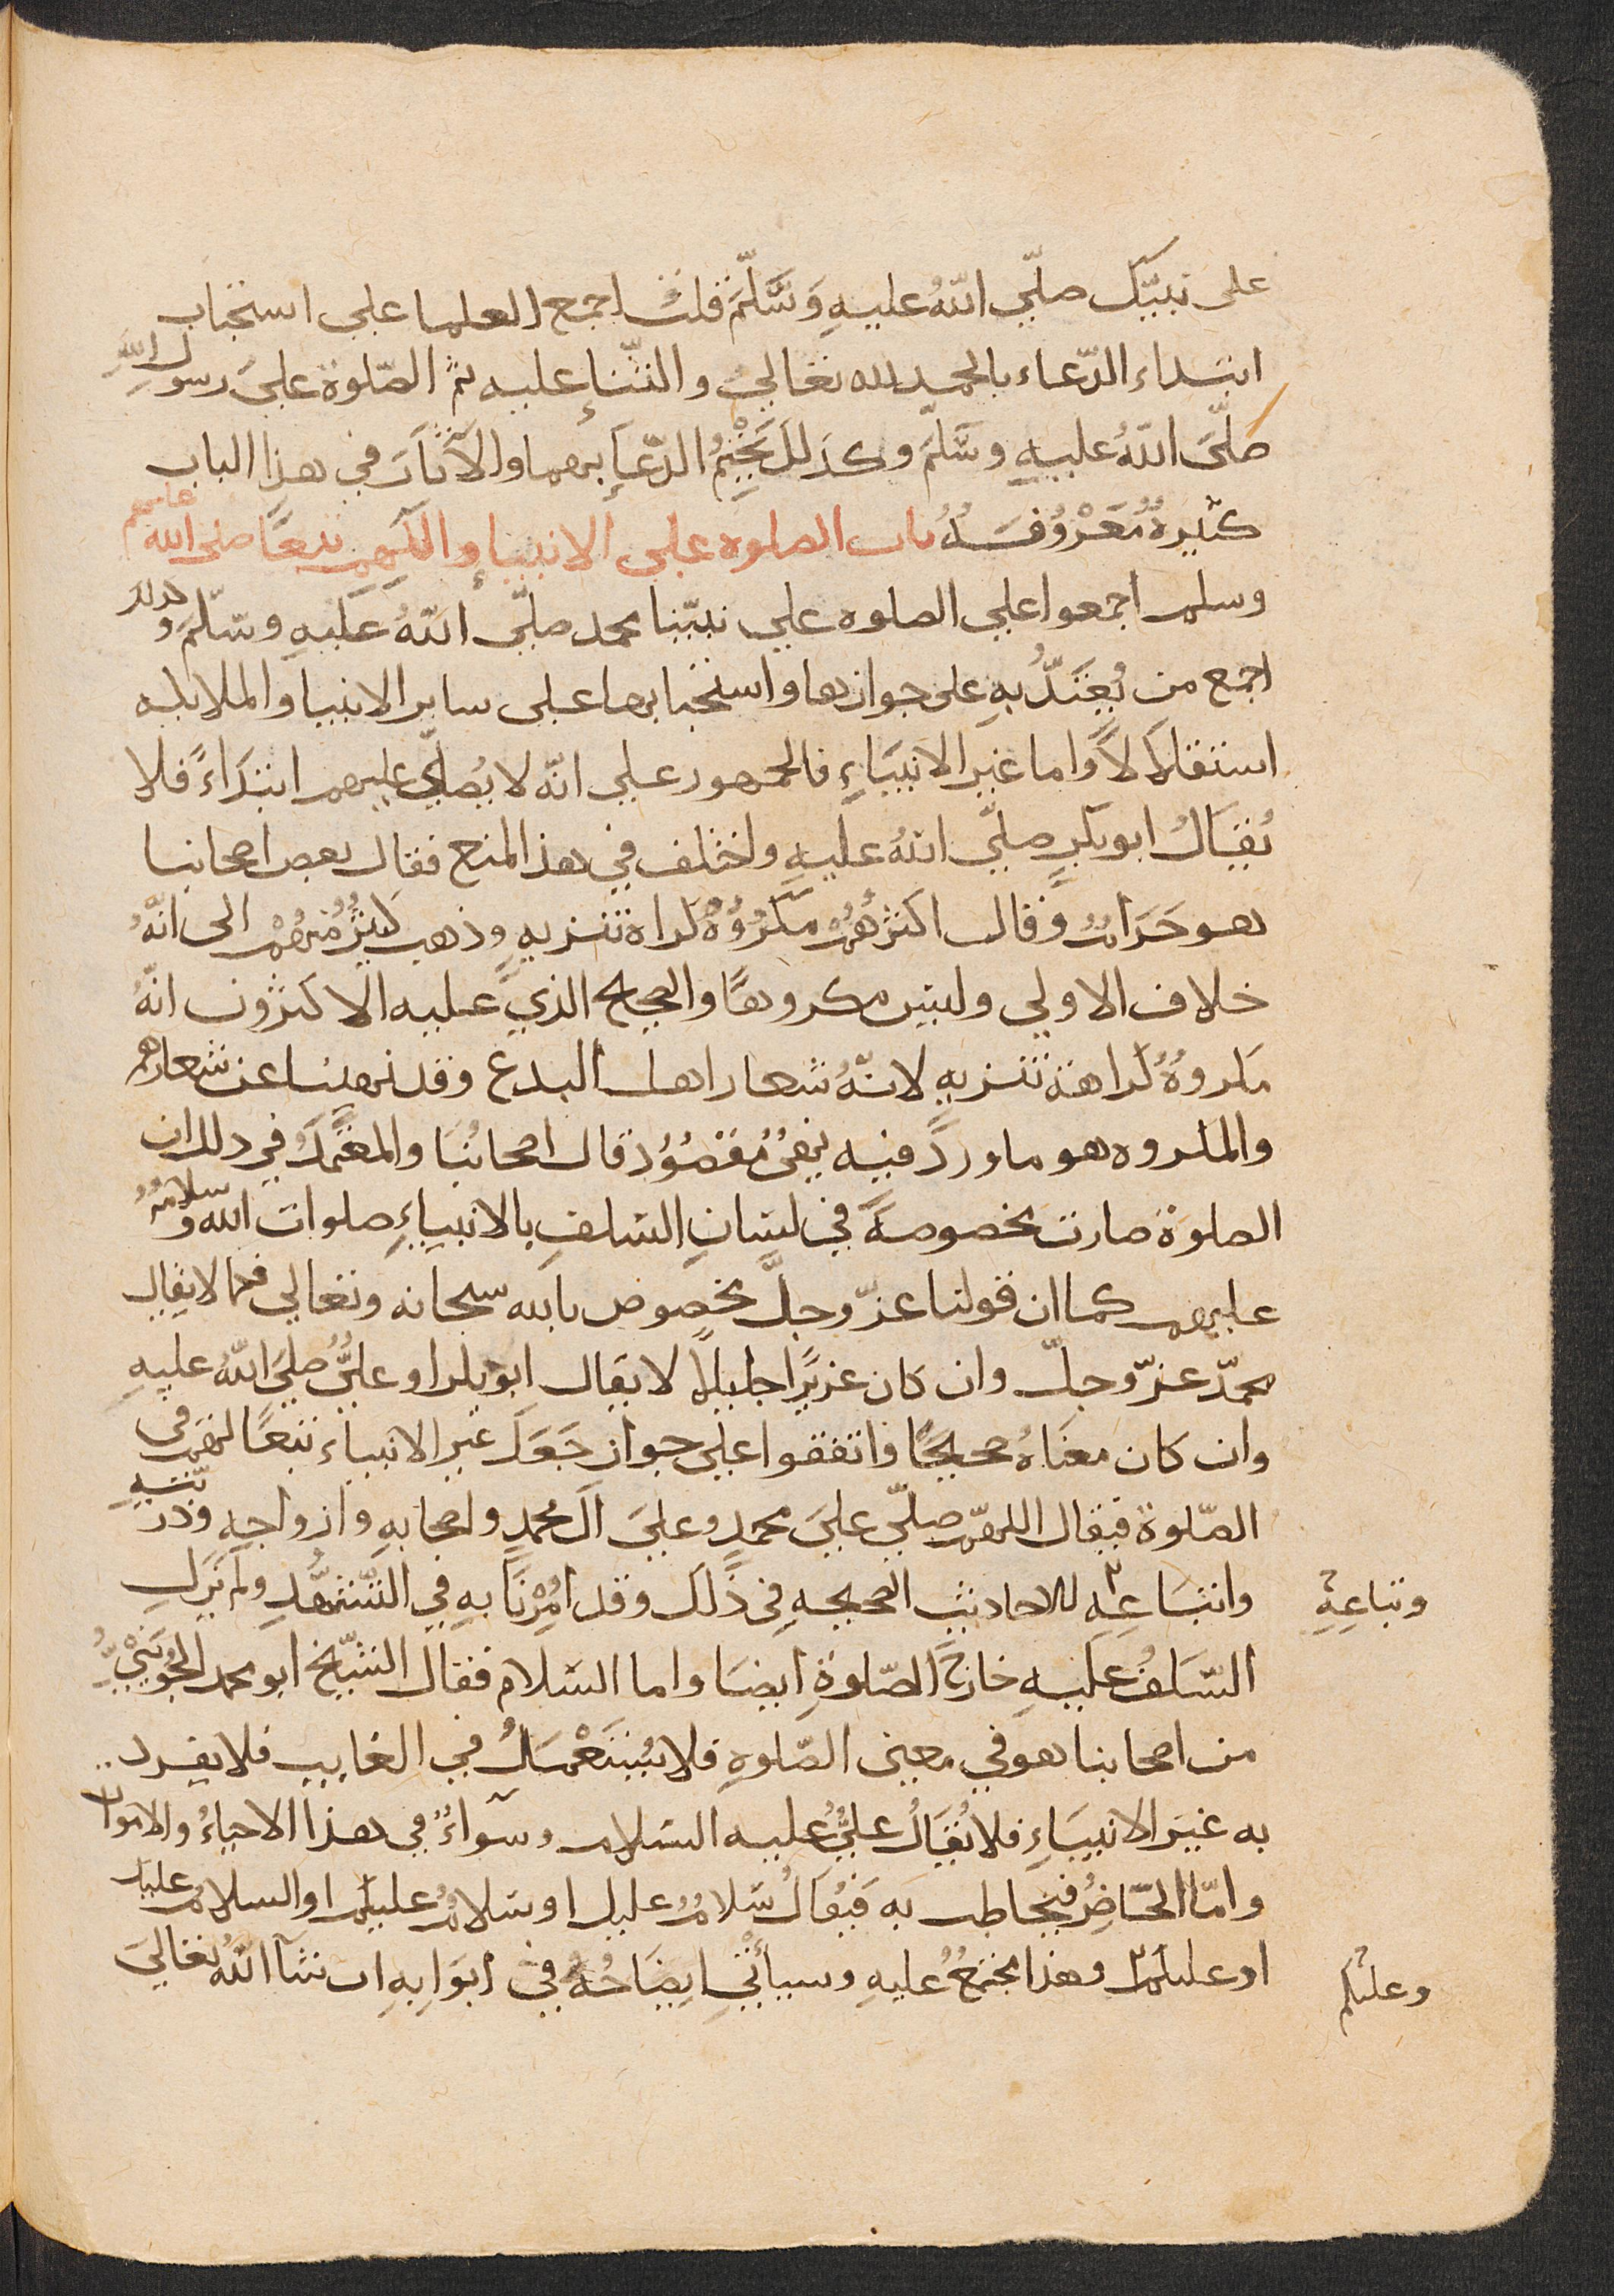 على نبيّك صلّي اللّهُ عليهِ وَسَّلَّمَ قلتُ اجمع العلما على استحباب
ابتداء الدّعاء بالحمد لله تعاليٰ والثّنإ عليه ثم الصّلوة عليَ رسولِ اللهِ
صَلّىَ اللّهُ عليهِ وسَّلَّمَ وكذلكَ يَخْتِمُ الدّعآ بهما والآثَار في هذا الباب
كثيرةٌ مَعْرُوفَةٌ باب الصلوه على الانبيإ وآلهم تبعًا صلى الله عليهم
وسلم اجمعوا على الصلوه علي نبيّنا محمد صلّى اللّهُ عَليهِ وسّلّمَ وكذلك
اجمع من يُعْتَدُّ بهِ على جوازها واستحبابها على سائر الانبيا والملايكه
استقلَالًا واما غير الانبيَاءِ فالجمهور علي انّه لا يُصلّي عليهم ابتدَاءً فلا
يُقَالُ ابوبكرٍ صلّى اللّهُ عليهِ واختلف في هذا المنع فقال بعض اصحابنا
هو حَرَامٌ وقال اكثرُهُم مكرُوهٌ كراهة تنزيهٍ وذهب كثيرٌ مّنهُمْ الى انّهُ
خلاف الاولي وليس مكروهًا والصحيح الذي عليه الاكثرون انّهُ
مكروهٌ كراهة تنزيهٍ لانّهُ شعار اهل البدع وقد نهينا عن شعارهم
والمكروه هو ما وردَ فيه نهىٌ مقصُودٌ قال اصحابُنَا والمعْتمَدُ في ذلك ان
الصلوة صارت مخصوصةً في لسَانِ السّلفِ بالانبياءِ صلوات الله وسلامُهُ
عليهم كما ان قولنا عزّ وجلَّ مخصوص بالله سبحانه وتعالي فكما لا يقال
محمّد عزّ وجلّ وان كان عزيزًا جليلًا لا يقال ابوبكر او عليٌّ صليَ اللّهُ عليهِ
وان كان معنَاهُ صحيحًا واتفقوا على جواز جَعَلَ غير الانبياء تبعًا لهم في
الصّلوة فيقال اللهمّ صلّي عليَ محمدٍ وعليَ آل محمدٍ واصحابهِ وازواجهِ وذرّيّتهِ
واتبَاعِهِ للاحاديث الصحيحهِ في ذَلكَ وقد اُمْرنَا بهِ في التّشهُّدِ ولم يَزَلِ
وتباعِهِ
السّلَفُ عليهِ خارجَ الصّلوةِ ايضا واما السّلام فقال الشّيخ ابو محمد الجُوَيْنيّ
من اصحابنا هو في معنى الصّلوةِ فلا يُسْتَعْمَلُ في الغايب فلا يفرد
به غيرَ الانبيَاءِ فلا يُقَالُ عليٌّ عليه السّلام وسوآءٌ في هذا الاحياءُ والاموات
وامّا الحَاضِرُ فيخاطب به فيُقالُ سَلامٌ عليك او سلامٌ عليكم او السلامُ عليك
او عليكم وهذا مجْمَعٌ عليهِ وسيأتي ايضَاحُهُ في ابوَابِهِ ان شآ اللّهُ تعاليَ
وعليكم